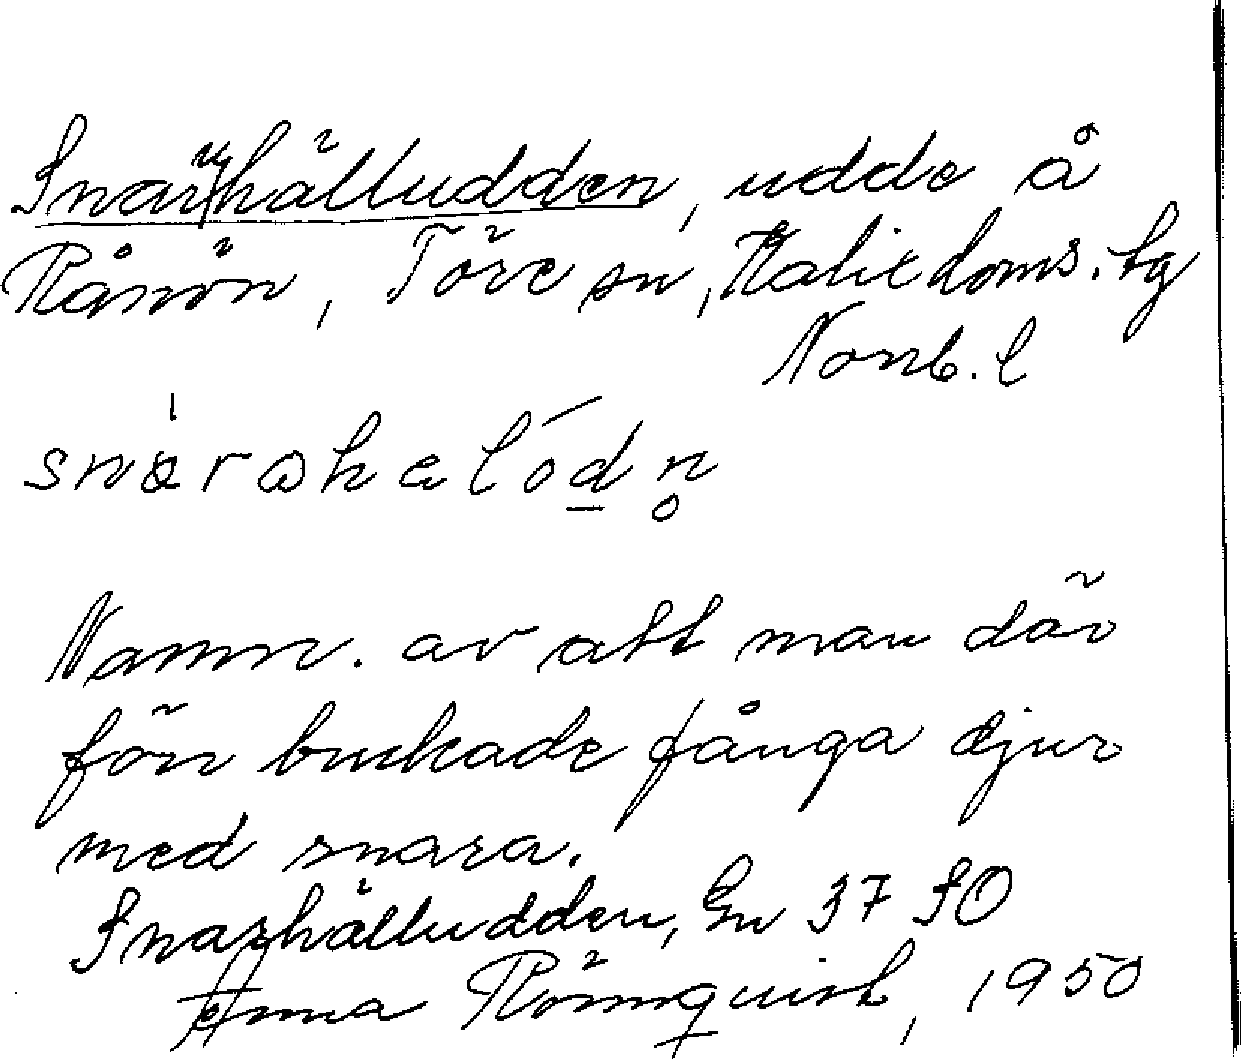 Snarhälludden, udde å
Rånön, Töre sn, Kalix doms. tg
Norrb. l
Namn. av att man där
förr brukade fånga djur
med snara.
Snarhälludden, Gn 37 SO
Anna Römquist, 1950